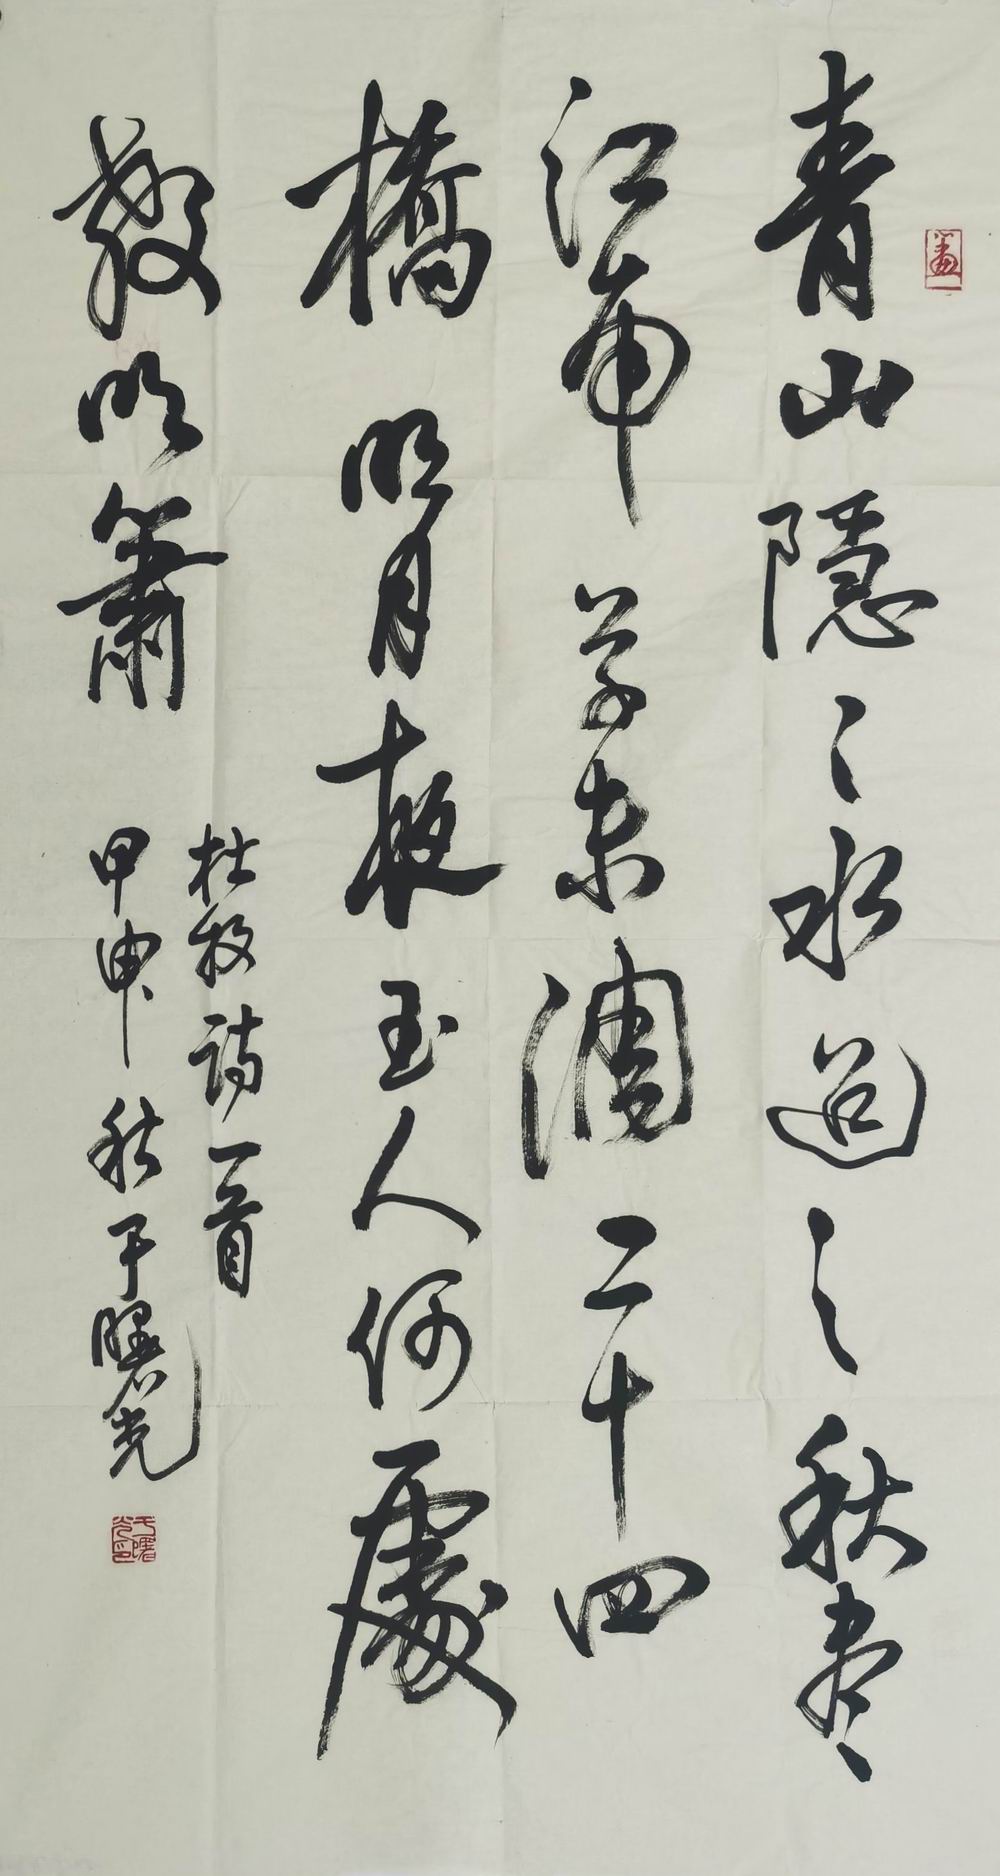 青山隱々水迢々秋盡
江南草未凋二十四
橋明月夜玉人何處
教吹簫
杜牧詩一首
甲申秋于曙光
于曙光印